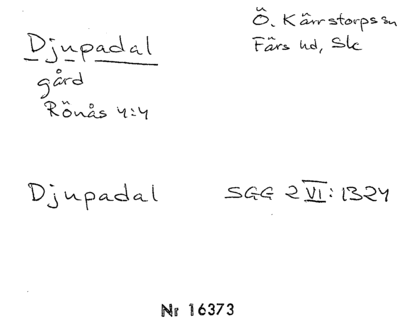 Ö. Kärrstorps sn
Färs hd, Sk
Djupadal
gård
Rönås 4:4
Djupadal
SGG 2 VI: 1324
Nr 16373